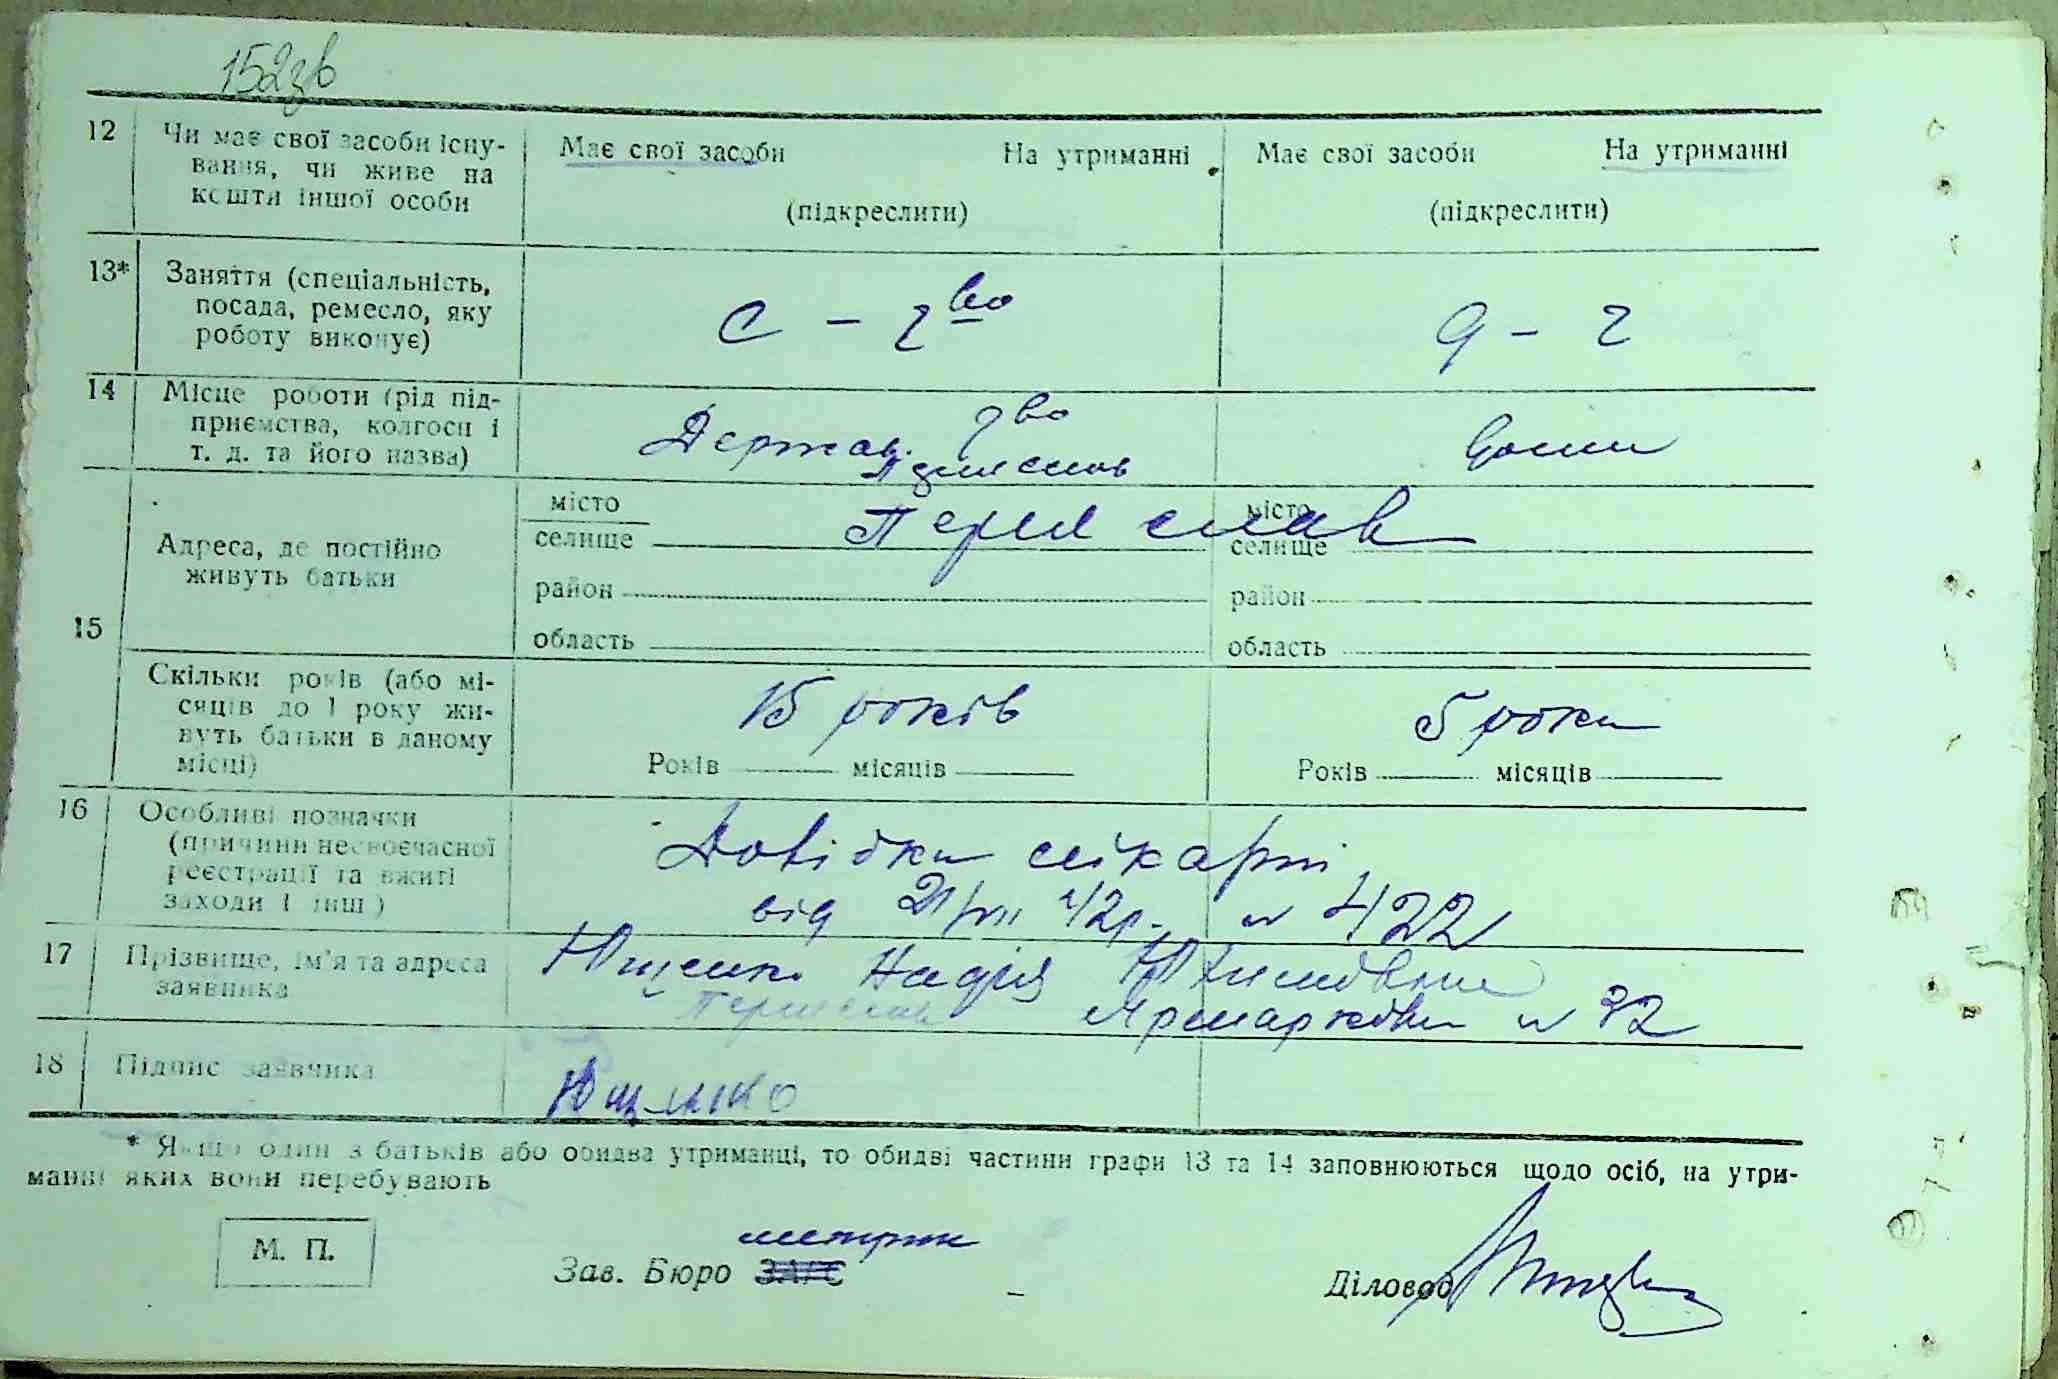 152зв
12 Чи має свої засоби існу-
вання, чи живе на
кошти іншої особи
Має свої засоби На утриманні
(підкреслити)
Має свої засоби На утриманні
(підкреслити)
13* Заняття (спеціальність,
посада, ремесло, яку
роботу виконує)
С – г во
д – г
14 Місце роботи (рід під-
приємства, колгосп і
т. д. та його назва)
Держав. г во
15 Адреса, де постійно
живуть батьки
місто
селище
район
область
Переяслав
місто
селище
район
область
Скільки років (або мі-
сяців до 1 року жи-
вуть батьки в даному
місці)
15 років
Років місяців
5 роки
Років місяців
16 Особливі позначки
(причини несвоєчасної
реєстрації та вжиті
заходи і інш.)
Довідки лікарні
від 21/VII 42р. № 422
17 Прізвище, ім'я та адреса
заявника
Ющенко Надія
Ярмарківська № 32
18 Підпис заявника
Ющенко
* Якщо один з батьків або обидва утриманці, то обидві частини графи 13 та 14 заповнюються щодо осіб, на утри-
манні яких вони перебувають
М. П.
метрик
Зав. Бюро ЗАГС
Діловод